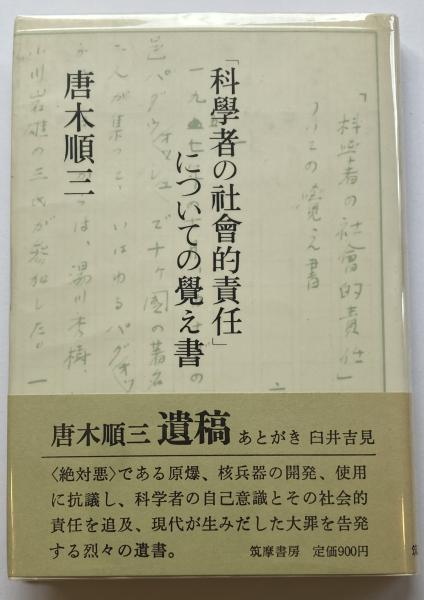 「科學者の社會的責任」
についての覺え書
唐木順三
「科學者の社會的責任」
ついての覺え書
唐木順三 遺稿 あとがき 臼井吉見
〈絶対悪〉である原爆、核兵器の開発、使用
に抗議し、科学者の自己意識とその社会的
責任を追及、現代が生みだした大罪を告発
する烈々の遺書。 筑摩書房 定価900円
筑